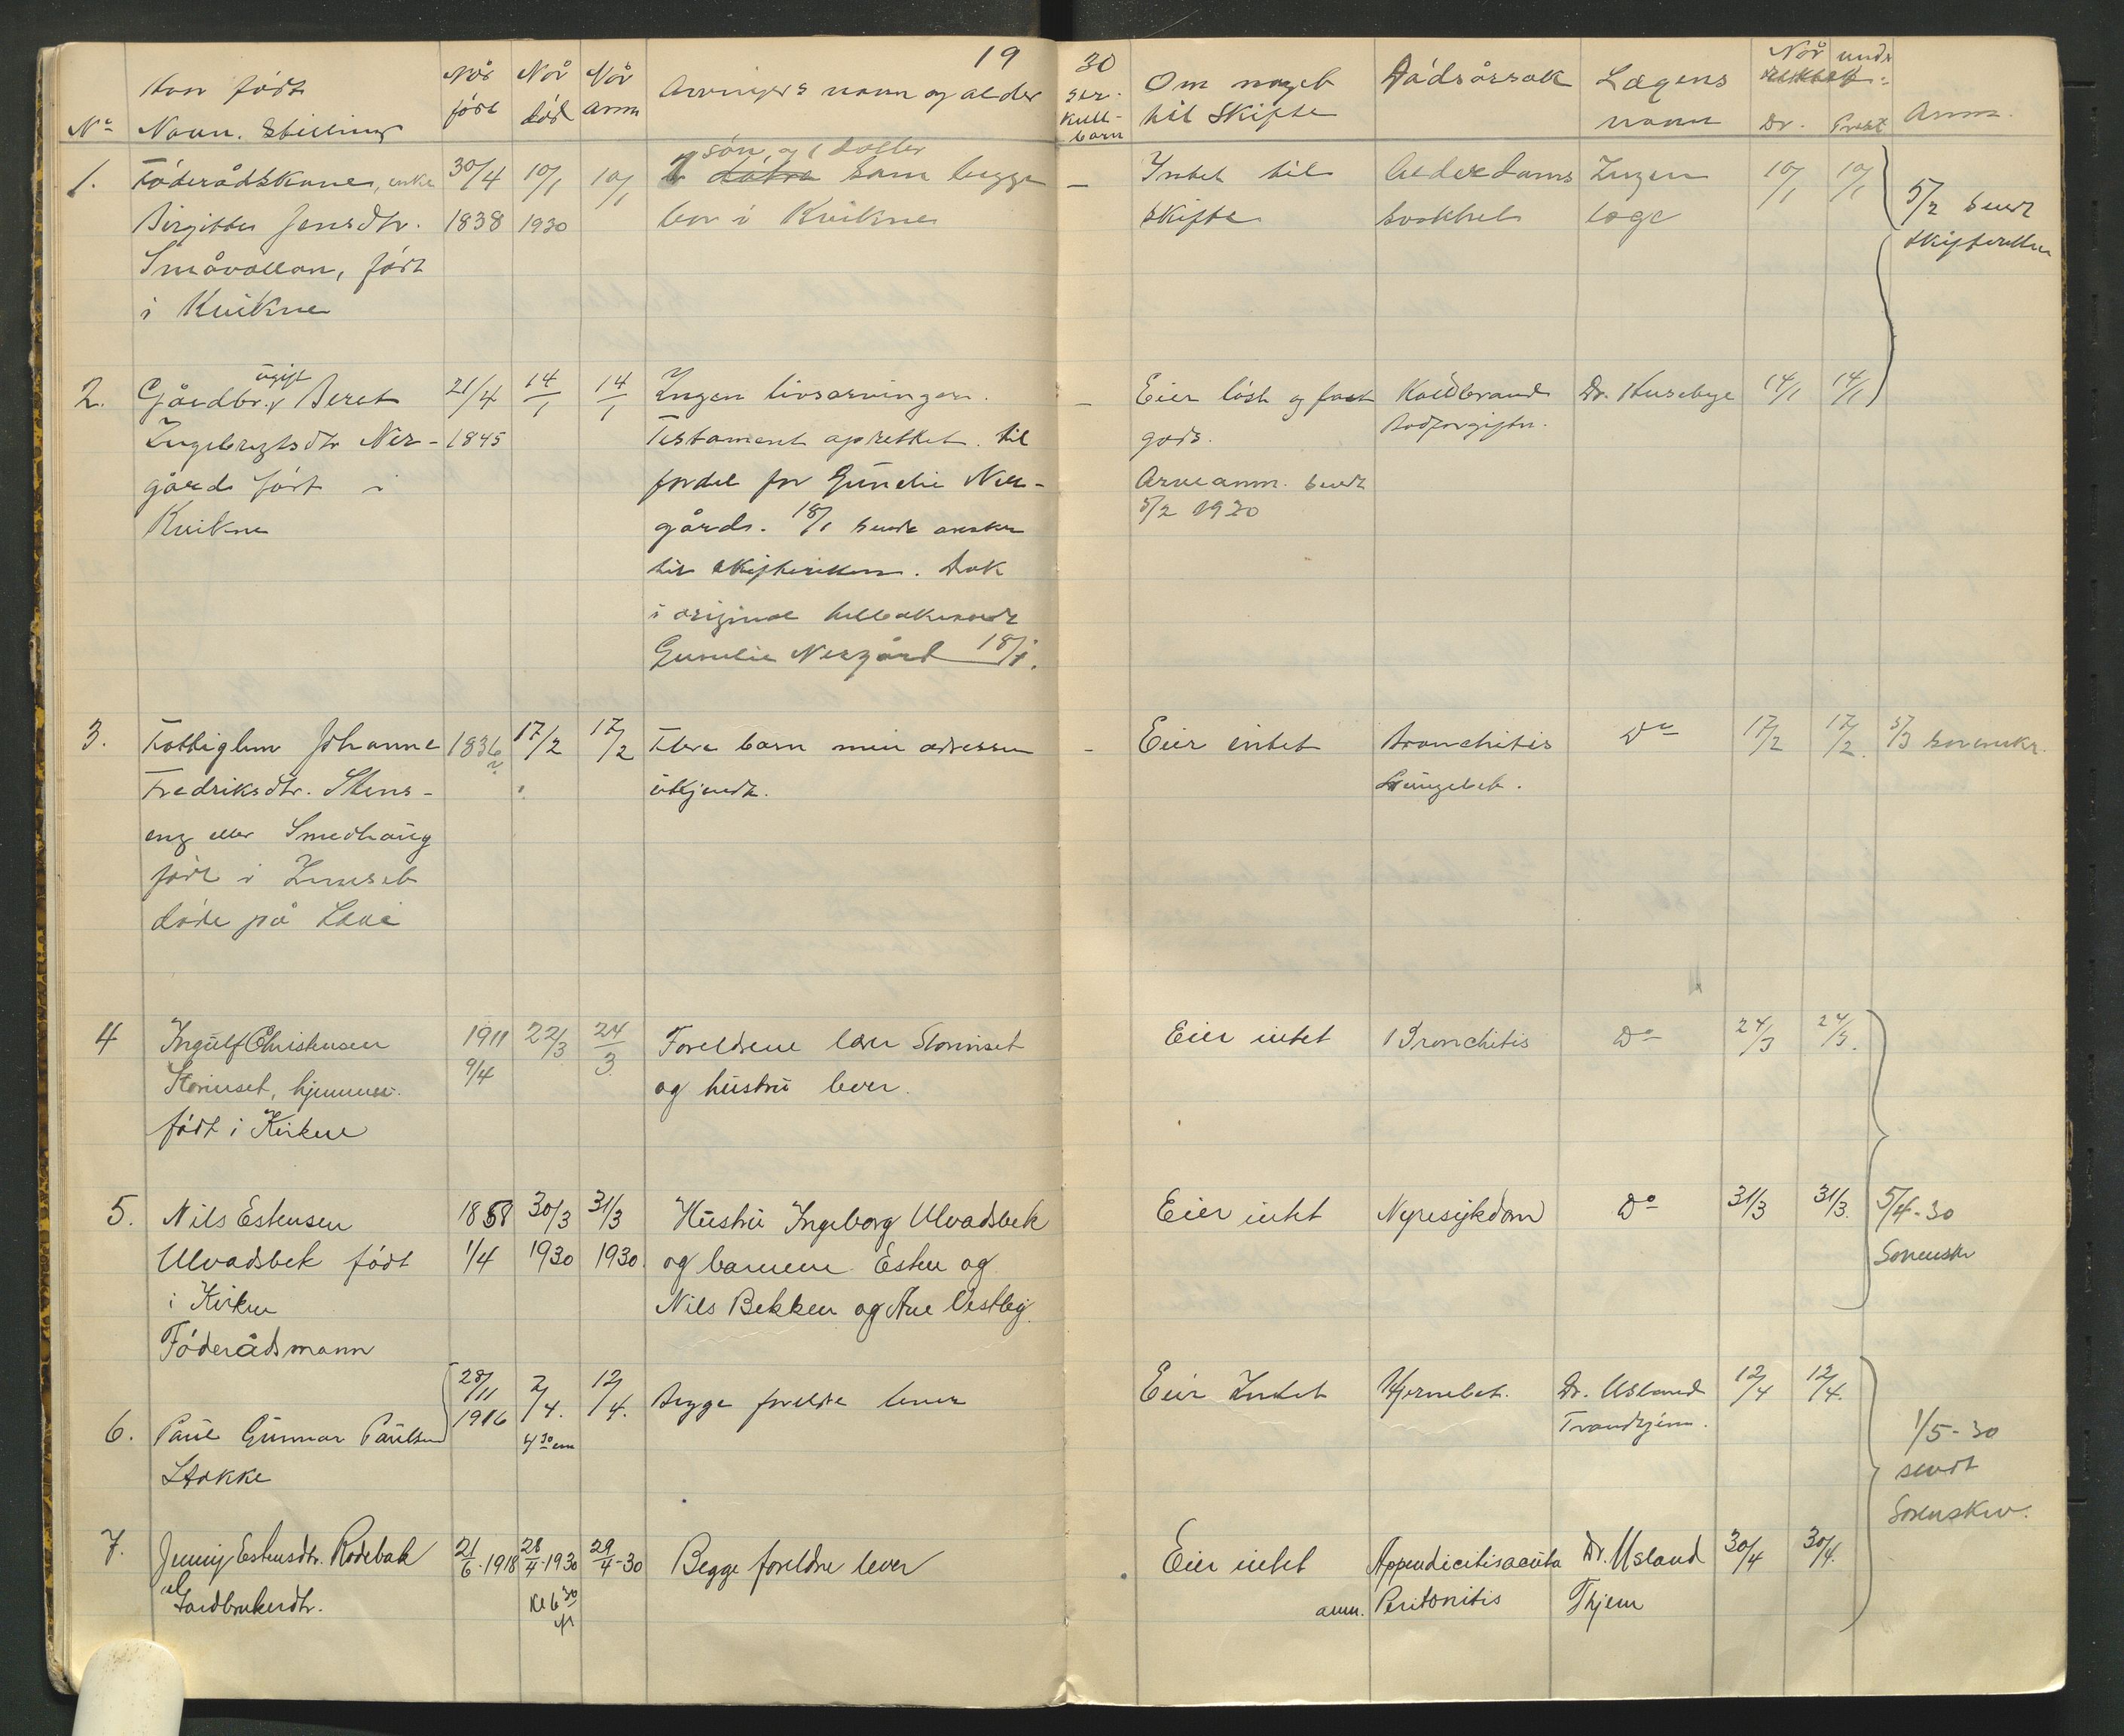 19 30
No Navn. Stilling Hvor født
Når født
Når død
Når anm
Arvingers navn og alder
Sær-kull-barn
Om noget til Skifte
Dødsårsak
Lægens navn
Når under
Dr. Prest
Anm.
1. Føderådskone, enke 30/4 10/1 10/1 1 søn og 1 datter døtre som begge – Intet til Alderdoms Ingen 10/1 10/1 5/2 sendt
Birgitte Jensdtr. 1838 1930 bor i Kvikne skifte svakhet læge skifteretten
Småvollan, født
i Kvikne
2. Gårdbr. ugift Beret 21/4 14/1 14/1 Ingen livsarvinger. – Eier løst og fast Koldbrand Dr. Husebye 14/1 14/1
Ingebrigtsdtr Ner- 1845 Testament oprettet til gods. Blodforgiftn.
gård født i fordel for Gunelie Ner- Arveanm. sendt
Kvikne gård. 18/1 sendt avskr 5/2 1930
til skifteretten. Dok
i original tilbakesendt
Gunelie Nergård 18/1.
3. Fattiglem Johanne 1836 17/2 17/2 Flere barn men adressen – Eier intet Bronchitis Do 17/2 17/2. 5/3 sorenskr.
Fredriksdtr. Stens- ukjendt. Lungebet.
eng eller Smedhaug
født i Innset
døde på
4 Ingulf Christensen 1911 22/3 24/3 Foreldrene Lars Storinset Eier intet Bronchitis Do 24/3 24/3.
Storinset, hjemmev. 9/4 og hustru lever.
født i Kvikne
5. Nils Estensen 1858 30/3 31/3 Hustru Ingeborg Ulvadsbek Eier intet Nyresykdom Do 31/3 31/3. 5/4-30
Ulvadsbek født 1/4 1930 1930. og barnene Esten og Sorenskr
i Kvikne Nils Bekken og Ane Vestby.
Føderådsmann
6. Paul Gunnar Paulsen 28/11 1916 2/4. 4 30 em 12/4. Begge foreldre lever Eier Intet Hjernebet. Dr. Usland 12/4 12/4. 1/5-30
Stokke Trondhjem. sendt
Sorenskriv.
7. Jenny Estensdtr. Rødebak 21/6.1918 28/4-1930 29/4-30 Begge foreldre lever Eier intet Appendicitis acuta Dr. Usland 30/4 30/4.
Gardbrukerdtr. Kl 6 30 anm. Peritonitis Thjem